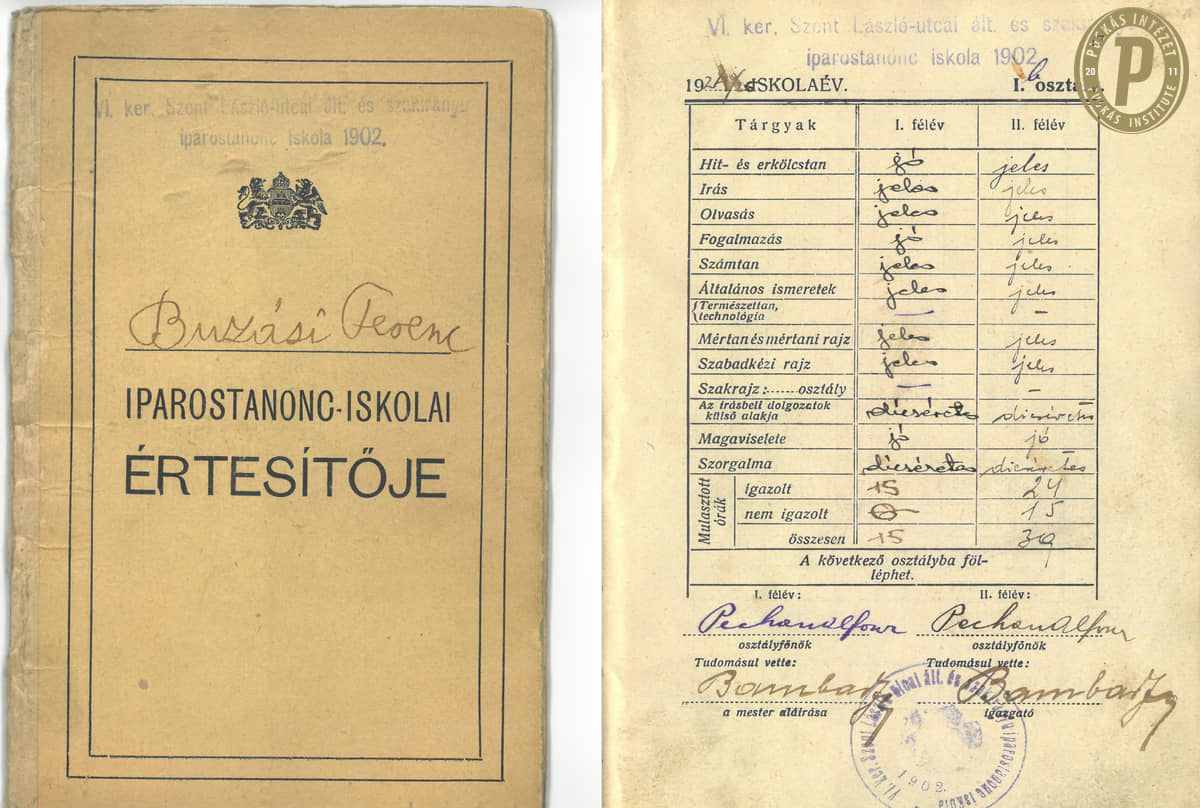 VI. ker. Szent László-utcai ált. és szakirányú
iparostanonc iskola 1902.
Buzási Ferenc
IPAROSTANONC-ISKOLAI
ÉRTESÍTŐJE
VI. ker. Szent László-utcai ált. és
iparostanonc iskola 1902
PUSKÁS INTÉZET
20 P 11
PUSKÁS INSTITUTE
ISKOLAÉV. I. b osztály.
Tárgyak I. félév II. félév
Hit- és erkölcstan jó jeles
Irás jeles jeles
Olvasás jeles jeles
Fogalmazás jó jeles
Számtan jeles jeles
Általános ismeretek jeles jeles
Természettan,
technológia — —
Mértan és mértani rajz jeles jeles
Szabadkézi rajz jeles jeles
Szakrajz:......osztály — —
Az írásbeli dolgozatok
külső alakja dicséretes dicséretes
Magaviselete jó jó
Szorgalma dicséretes dicséretes
Mulasztott
órák
igazolt 15 24
nem igazolt 0 15
összesen 15 39
A következő osztályba föl-
léphet.
I. félév: II. félév:
osztályfőnök osztályfőnök
Tudomásul vette: Tudomásul vette:
a mester aláírása igazgató
1902.